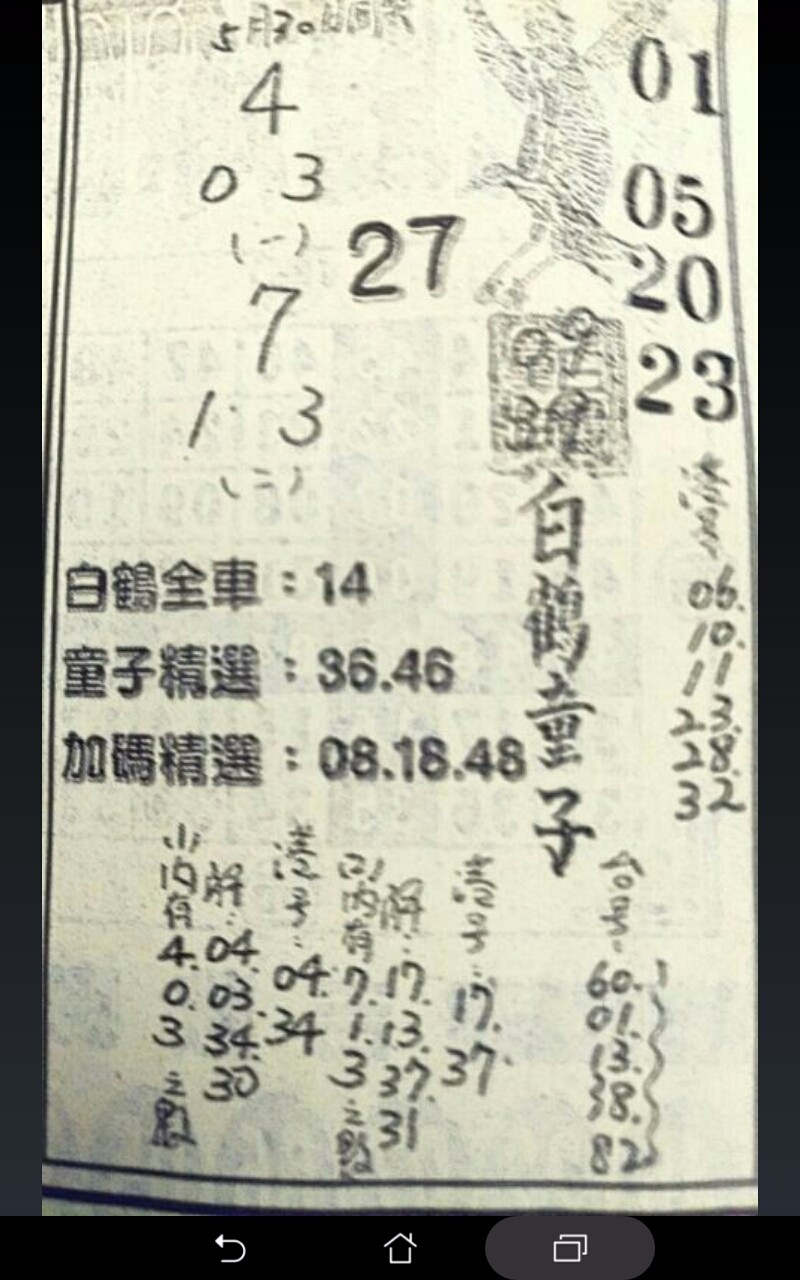 5月30日
4
0 3
(一)
7
1 3
(二)
27
01
05
20
23
白鶴童子
06.
10.
11
23.
28.
32
白鶴全車：14
童子精選：36.46
加碼精選：08.18.48
(1)內有
4.
0.
3
之數
解：
04.
03.
34.
30
號：
04.
34
(2)內有
7.
1.
3
之數
解：
17.
13.
37.
31
號：
17.
37.
60.
01.
13.
38.
82